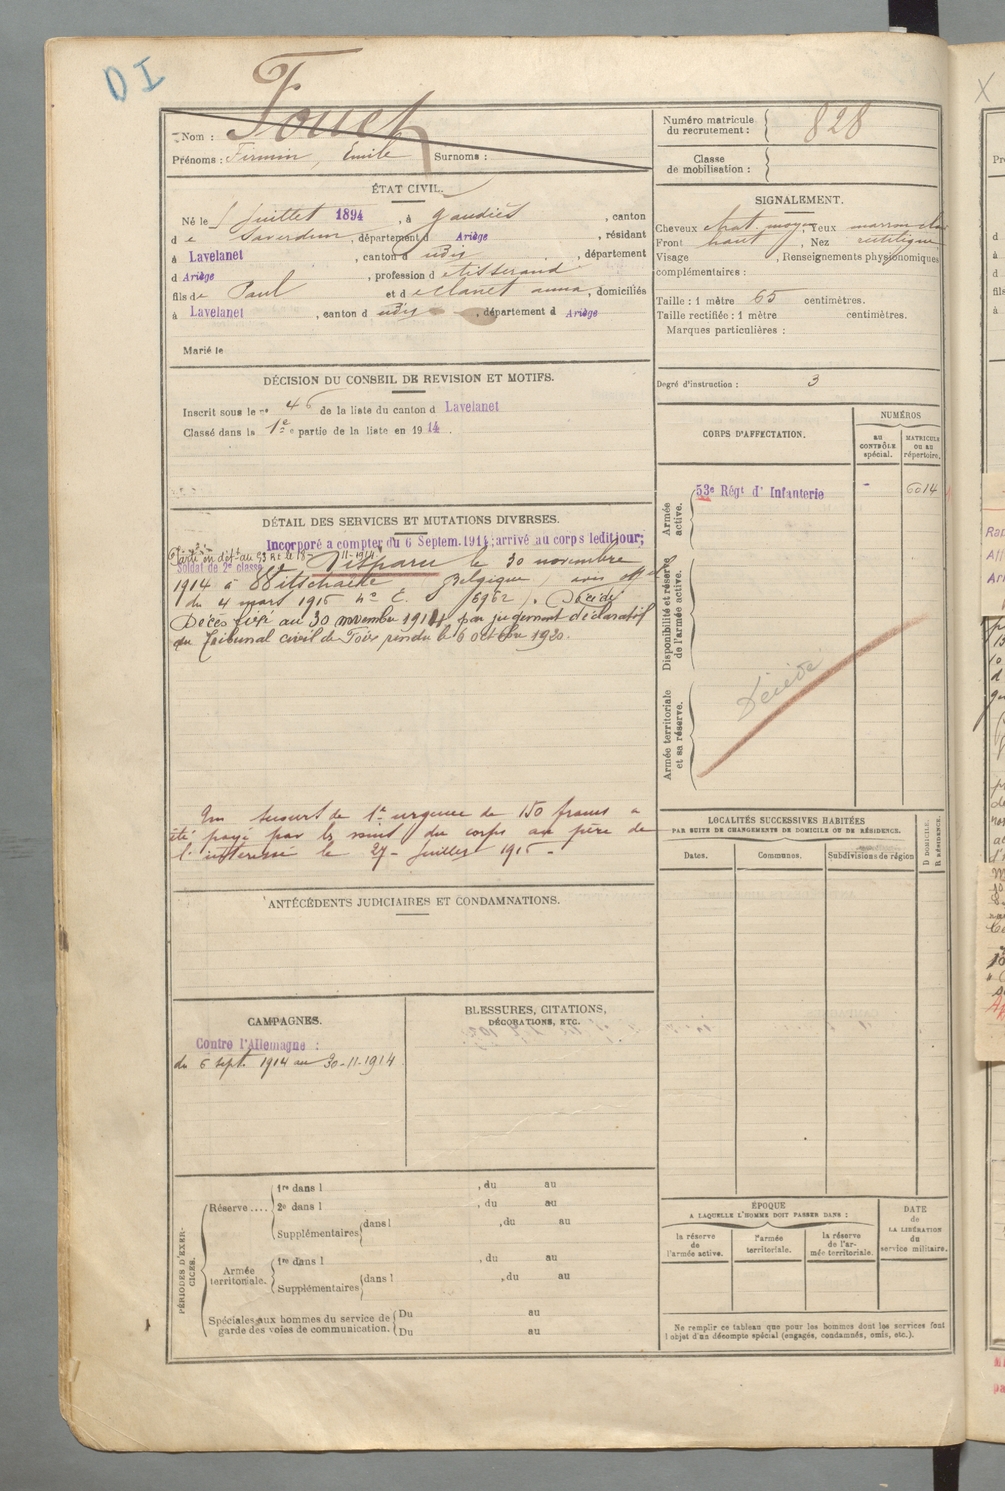 DI
Nom : Fouet
Prénoms : Firmin, Emile Surnoms :
Numéro matricule du recrutement : 828
Classe de mobilisation :
ÉTAT CIVIL.
Né le Juillet 1894, à Gaudiès, canton
de Saverdun, département d Ariège, résidant
à Lavelanet, canton d udis, département
d Ariège, profession de tisserand
fils de Paul et de Clanet Anna, domiciliés
à Lavelanet, canton d udis, département d Ariège
Marié le
SIGNALEMENT.
Cheveux chat. moyen, Yeux marron clair
Front haut, Nez rectiligne
Visage , Renseignements physionomiques
complémentaires :
Taille : 1 mètre 65 centimètres.
Taille rectifiée : 1 mètre centimètres.
Marques particulières :
Degré d'instruction : 3
DÉCISION DU CONSEIL DE REVISION ET MOTIFS.
Inscrit sous le n° 46 de la liste du canton d Lavelanet
Classé dans la 1e partie de la liste en 1914.
CORPS D'AFFECTATION.
NUMÉROS
AU CONTRÔLE spécial.
MATRICULE OU AU répertoire.
Armée active.
53e Régt d' Infanterie - 6014
Disponibilité et réserve de l'armée active.
Armée territoriale et sa réserve.
Décédé
DÉTAIL DES SERVICES ET MUTATIONS DIVERSES.
Incorporé a compter du 6 Septem. 1914; arrivé au corps ledit jour;
Soldat de 2e classe
Parti en dét. au 53 R.I. le 18-11-1914
Disparu le 30 novembre
1914 à Witschaete (Belgique) avis officiel
du 4 mars 1915 n° E. S 6962). Décédé
Décès fixé au 30 novembre 1914 par jugement déclaratif
du Tribunal civil de Foix rendu le 6 octobre 1920.
Un secours de 1e urgence de 150 francs a
été payé par les soins du corps au père de
l'intéressé le 27 Juillet 1915 -
ANTÉCÉDENTS JUDICIAIRES ET CONDAMNATIONS.
CAMPAGNES.
Contre l'Allemagne :
du 6 sept. 1914 au 30-11-1914
BLESSURES, CITATIONS,
DÉCORATIONS, ETC.
LOCALITÉS SUCCESSIVES HABITÉES
PAR SUITE DE CHANGEMENTS DE DOMICILE OU DE RÉSIDENCE.
Dates. Communes. Subdivisions de région
D DOMICILE. R RÉSIDENCE.
PÉRIODES D'EXERCICES.
Réserve....
1re dans l , du au
2e dans l , du au
Supplémentaires dans l , du au
Armée territoriale.
1re dans l , du au
Supplémentaires dans l , du au
Spéciales aux hommes du service de garde des voies de communication.
Du au
Du au
ÉPOQUE
A LAQUELLE L'HOMME DOIT PASSER DANS :
la réserve de l'armée active.
l'armée territoriale.
la réserve de l'armée territoriale.
DATE de LA LIBÉRATION du service militaire.
Ne remplir ce tableau que pour les hommes dont les services font
l'objet d'un décompte spécial (engagés, condamnés, omis, etc.).